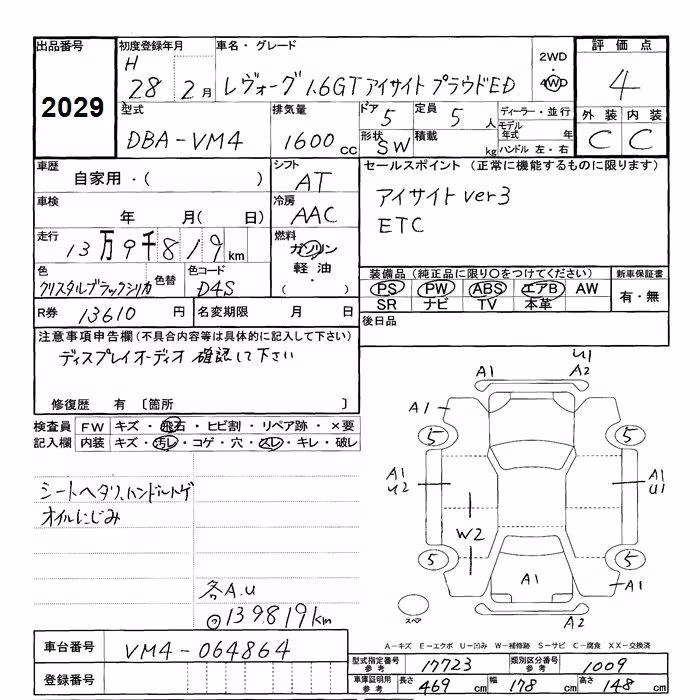 出品番号 初度登録年月 車名・グレード 2WD 評価点
2029 H 28 2月 レヴォーグ 1.6GTアイサイト プラウドED 4WD 4
型式 排気量 ドア 5 定員 5人 ディーラー・並行 外装 内装
DBA-VM4 1600cc 形状 SW 積載 kg モデル年式 年 C C
ハンドル 左・右
車歴 シフト セールスポイント (正常に機能するものに限ります)
自家用・( ) AT アイサイト ver3
車検 冷房 ETC
年 月( 日) AAC
走行 燃料
13万9千819km ガソリン
色 色替 色コード 軽油・
クリスタルブラックシリカ D4S ( )
装備品(純正品に限り○をつけてください) 新車保証書
PS PW ABS エアB AW 有・無
SR ナビ TV 本革
R券 13610円 名変期限 月 日 後日品
注意事項申告欄(不具合内容等は具体的に記入して下さい)
ディスプレイオーディオ 確認して下さい
修復歴 有〔箇所 〕
検査員 FW キズ・飛石・ヒビ割・リペア跡・×要
記入欄 内装 キズ・汚レ・コゲ・穴・スレ・キレ・破レ
シートヘタリ、ハンドルトゲ
オイルにじみ
各A.U
◎139819km
U1
A1 A2
A1
5 5
A1 A1
U2 U1
W2
5 5
A1 A1
スペア A2
A-キズ E-エクボ U-凹み W-補修跡 S-サビ C-腐食 XX-交換済
車台番号 VM4-064864
登録番号
型式指定番号 参考 17723 類別区分番号 参考 1009
車庫証明用 参考 長さ 469cm 幅 178cm 高さ 148cm